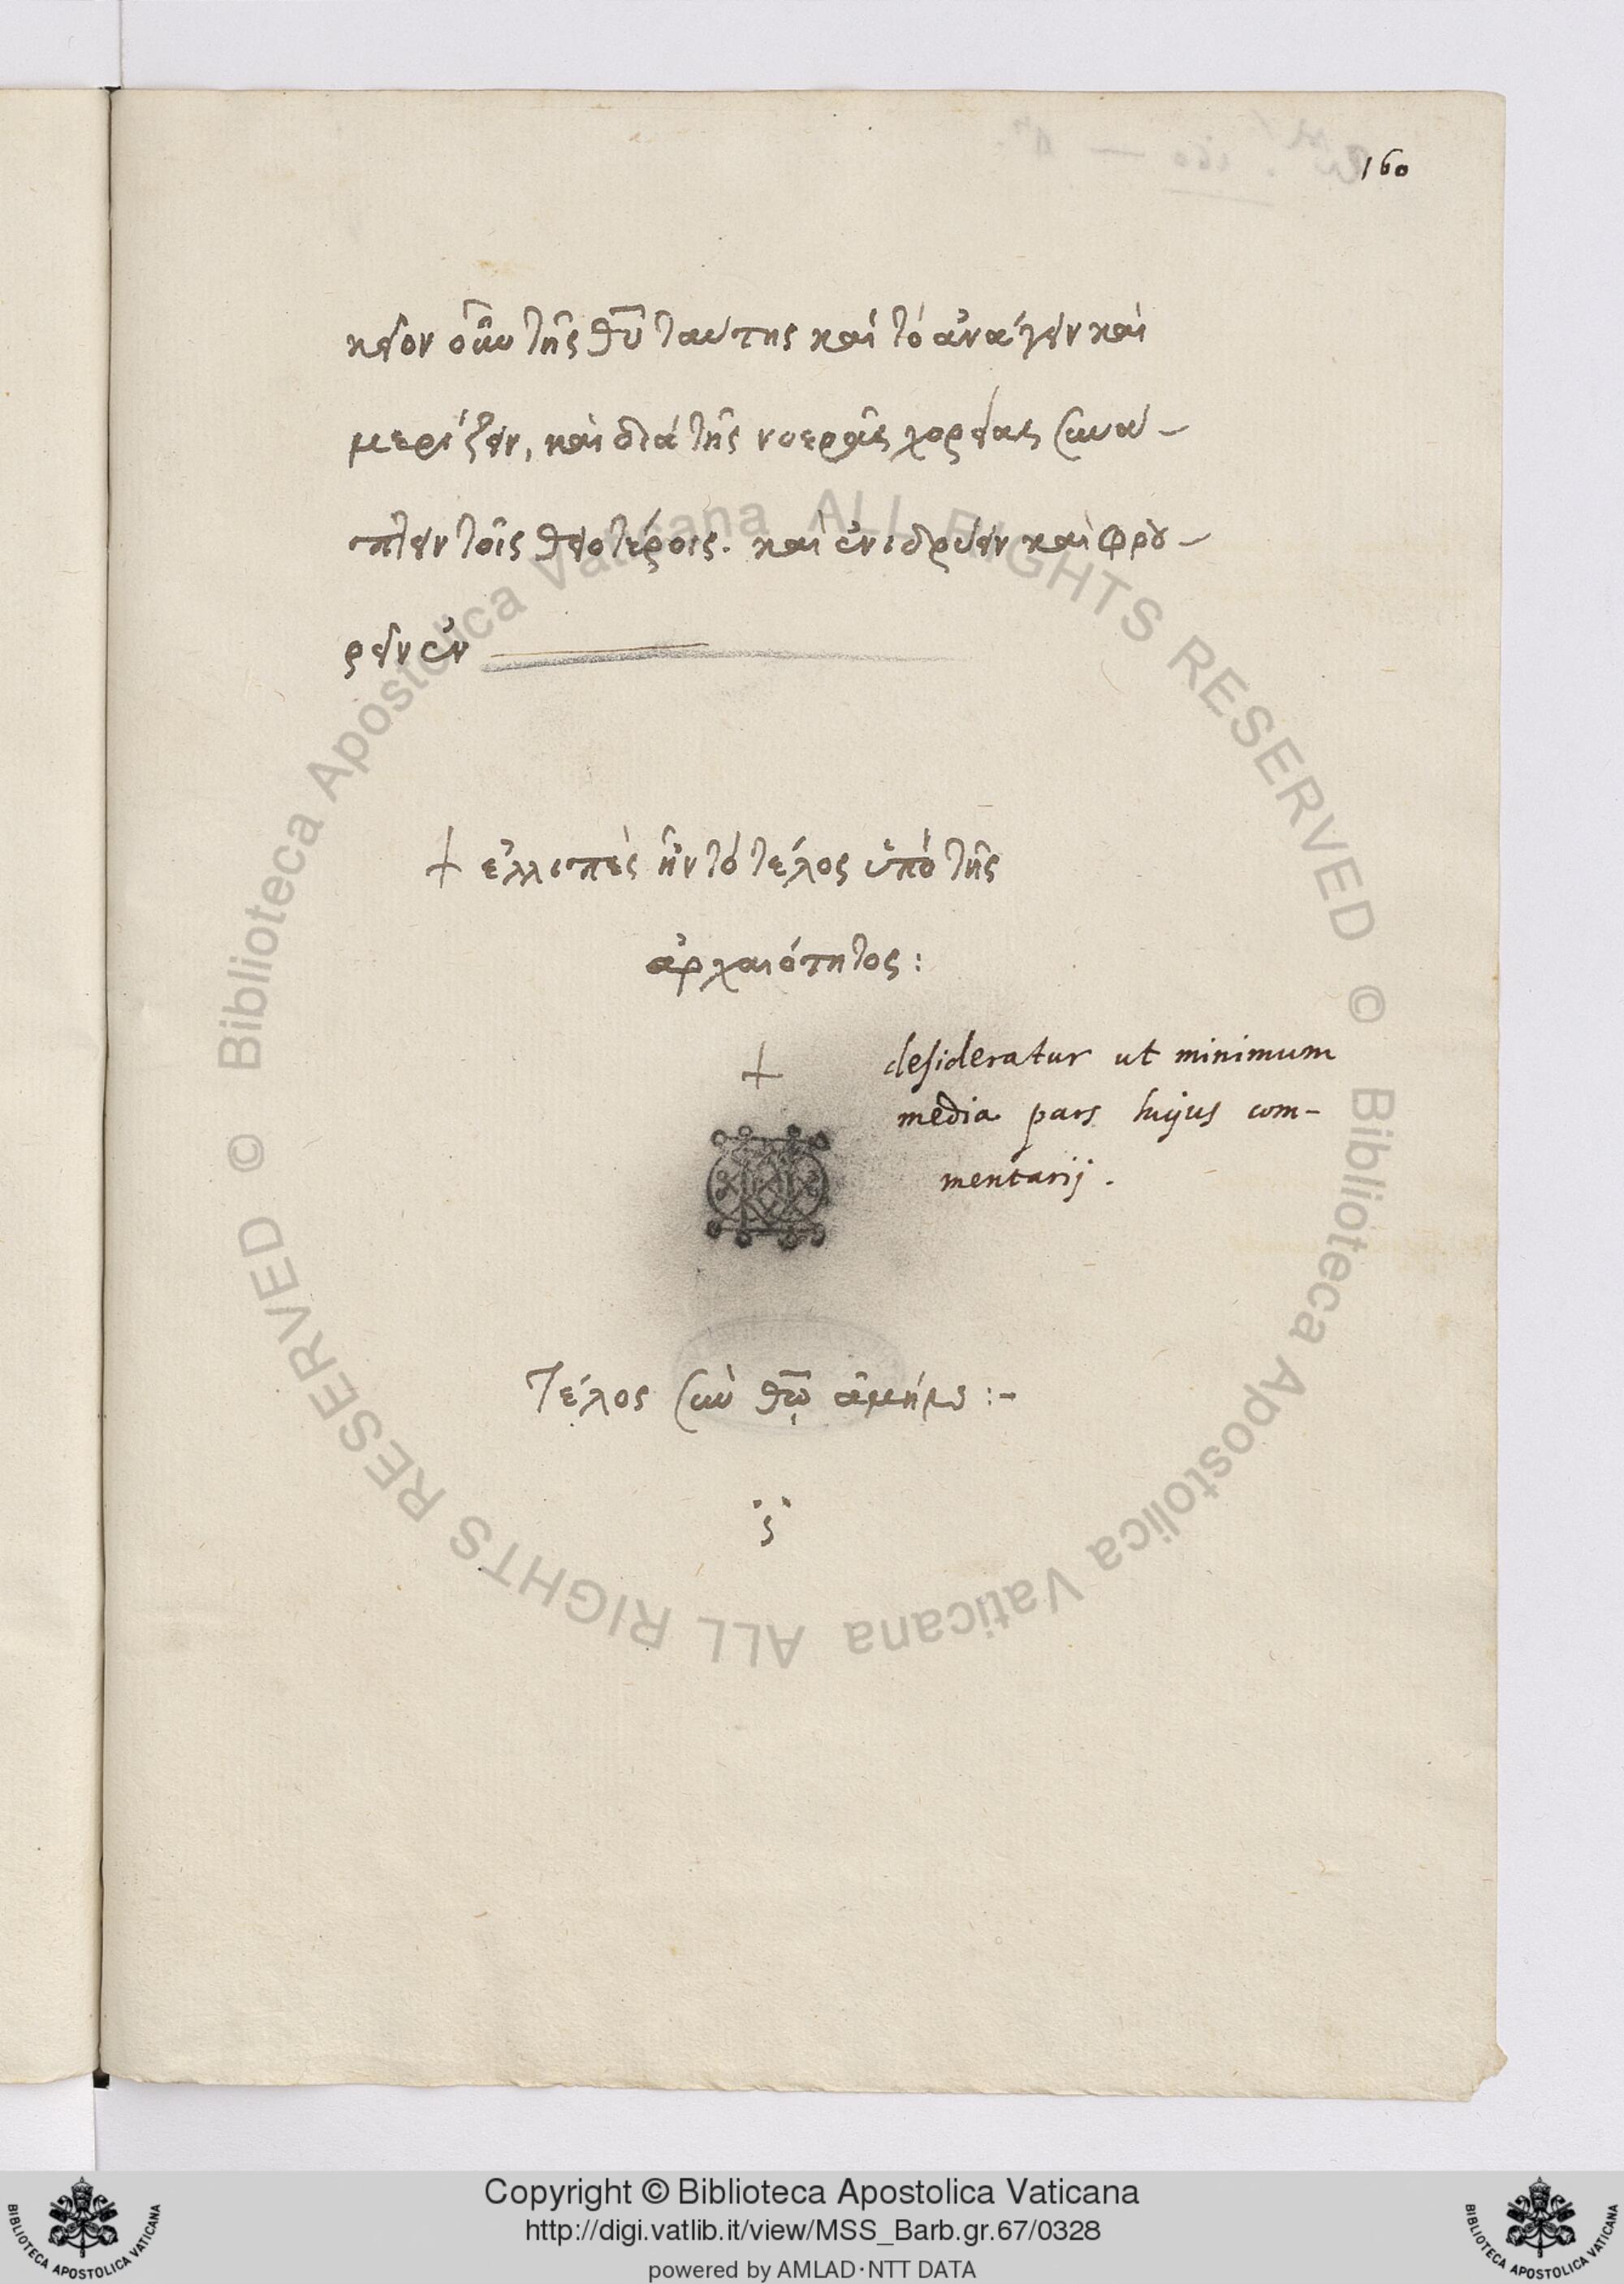 160
κεῖον οὖν τῆς θῡ ταύτης καὶ τὸ ἀνάγειν καὶ
μερίζειν, καὶ διὰ τῆς νοερᾶς χορείας συνά-
πτειν τοῖς θειοτέροις. καὶ ἐνιδρύειν καὶ φρου-
ρεῖν ἐν
+ ἐλλιπὲς ἦν τὸ τέλος ὑπὸ τῆς
ἀρχαιότητος:
+
desideratur ut minimum
media pars hujus com-
mentarij.
Τέλος σὺν θω̅ ἀμήν :-
Copyright © Biblioteca Apostolica Vaticana
http://digi.vatlib.it/view/MSS_Barb.gr.67/0328
powered by AMLAD·NTT DATA
© Biblioteca Apostolica Vaticana ALL RIGHTS RESERVED
© Biblioteca Apostolica Vaticana ALL RIGHTS RESERVED
BIBLIOTECA APOSTOLICA VATICANA
BIBLIOTECA APOSTOLICA VATICANA